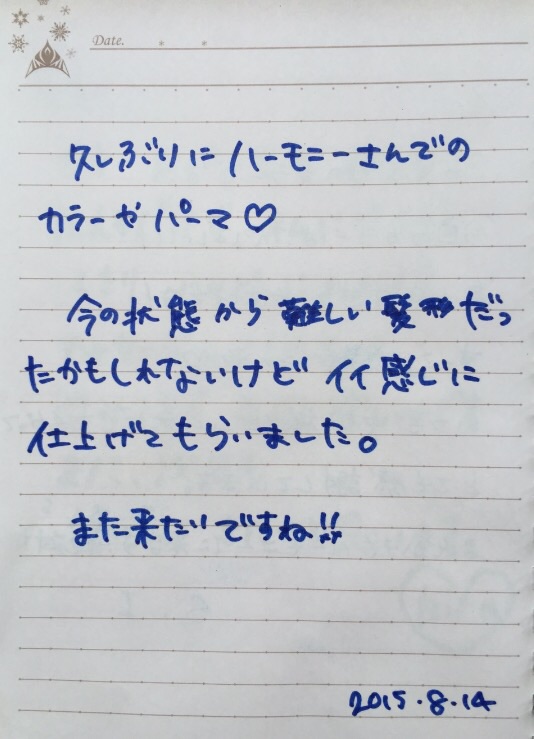 Date.
久しぶりにハーモニーさんでの
カラーやパーマ♡
今の状態から難しい髪形だっ
たかもしれないけどイイ感じに
仕上げてもらいました。
また来たいですね!!
2015.8.14